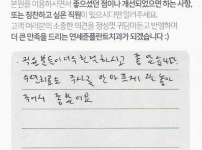 본원을 이용하시면서 좋았었던 점이나 개선되었으면 하는 사항,
또는 칭찬하고 싶은 직원이 있으시다면 알려주세요.
고객 여러분의 소중한 의견을 정성껏 귀담아듣고 반영하여
더 큰 만족을 드리는 연세준플란트치과가 되겠습니다 :)
직원분들이 너무 친절하시고 좋았습니다
수면치료도 주사를 안아프게 잘 놓아
주셔서 좋았어요